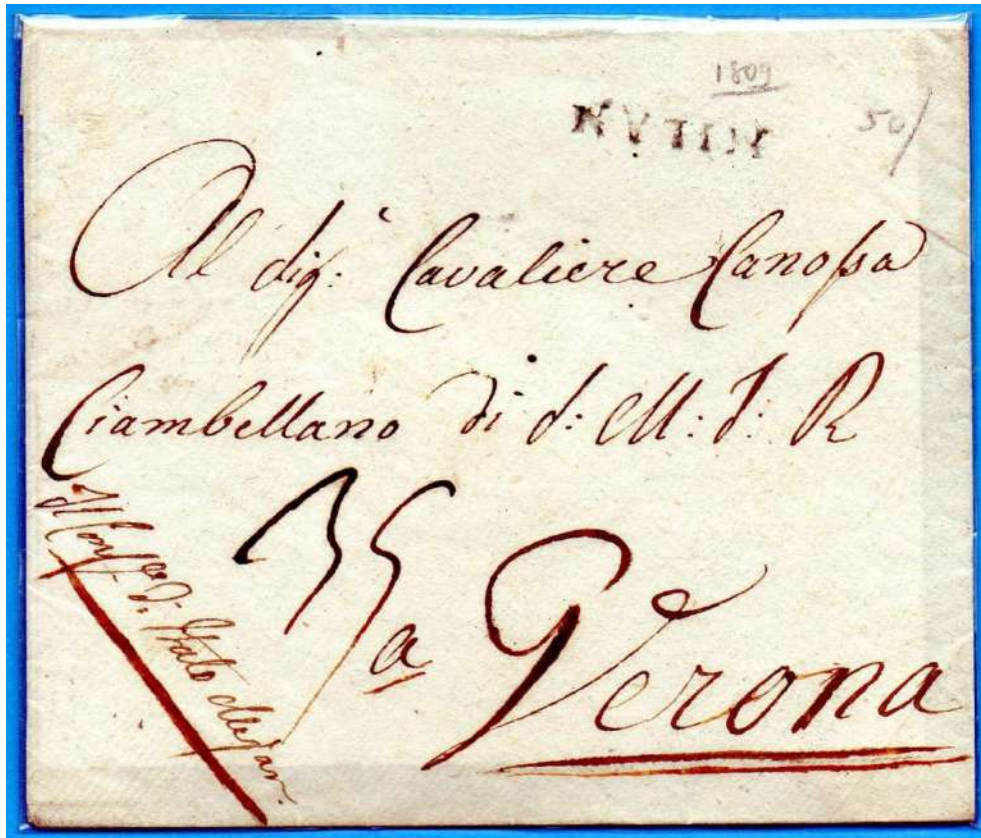 1809
MILAN
50/
Al Sig.r Cavaliere Canossa
Ciambellano di S: M: I: R
35
a Verona
Il Consre di Stato